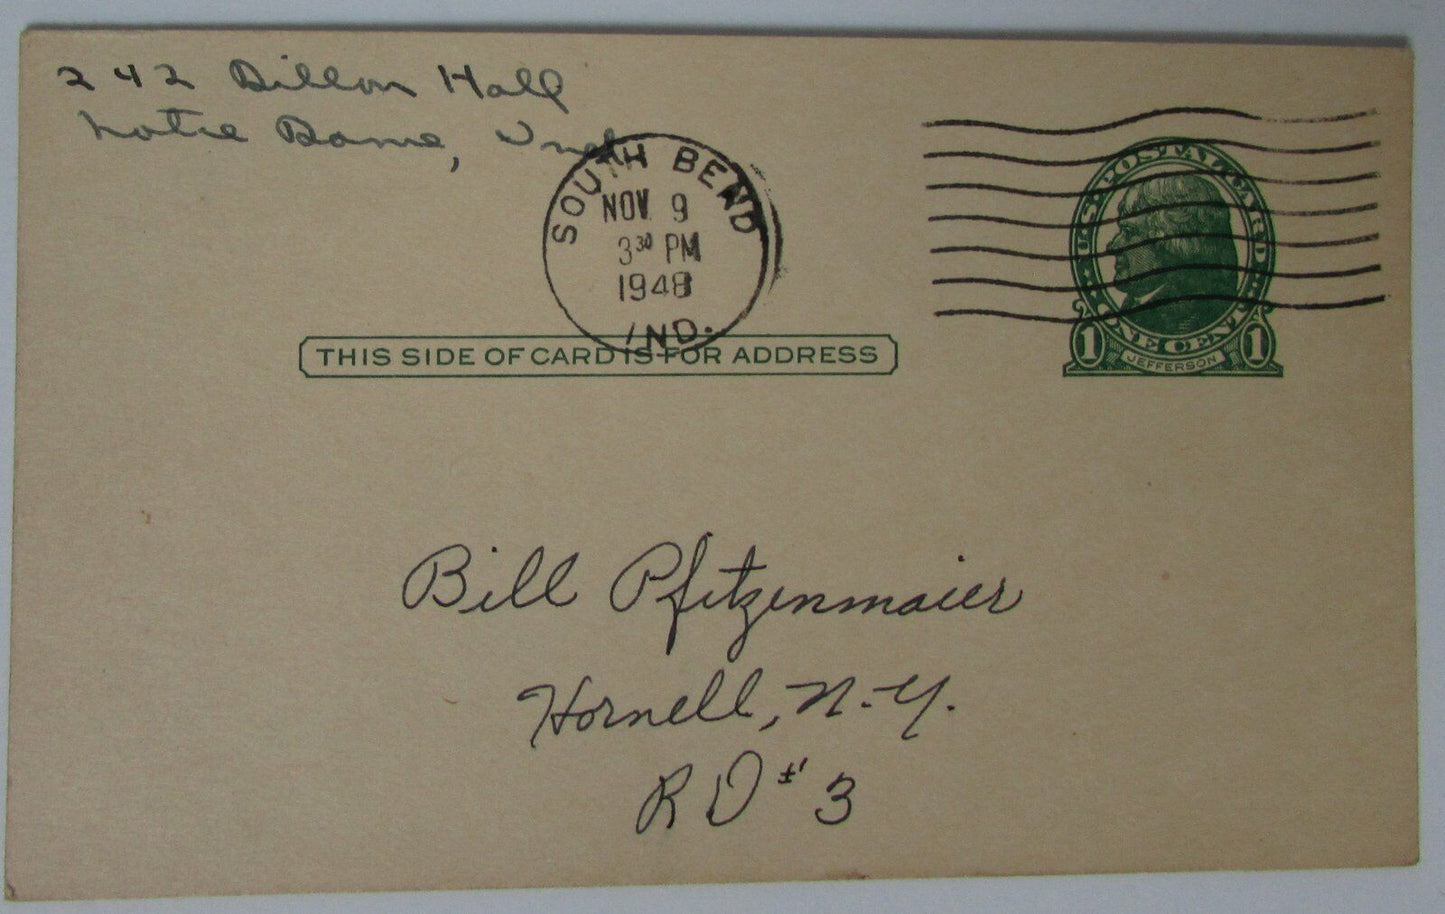 242 Dillon Hall
Notre Dame, Ind
SOUTH BEND
NOV 9
3 30 PM
1948
IND.
U.S. POSTAL CARD
1 ONE CENT 1
JEFFERSON
THIS SIDE OF CARD IS FOR ADDRESS
Bill Pfitzenmaier
Hornell, N.Y.
RD #3